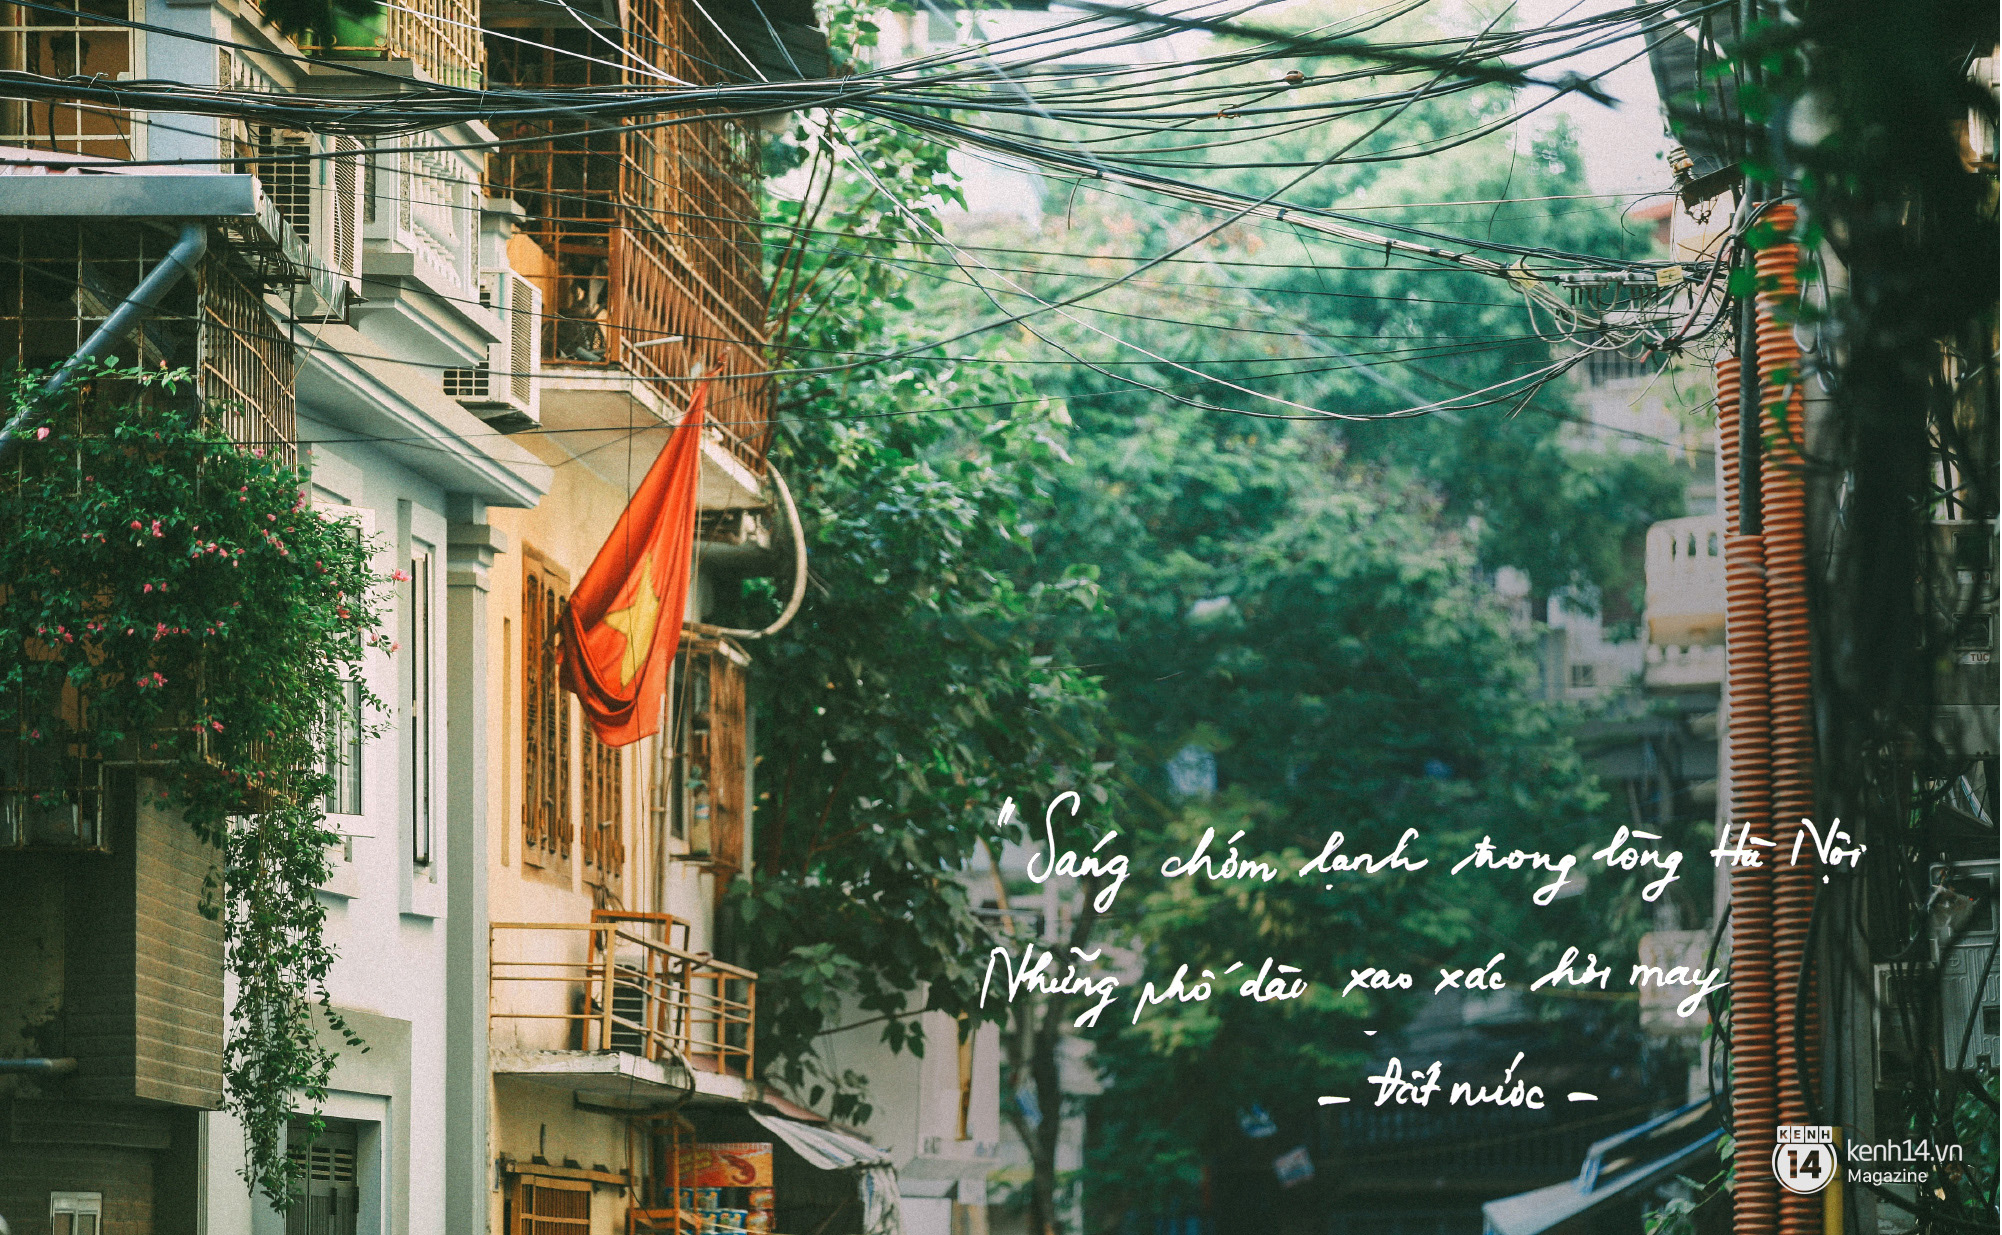 "Sáng chớm lạnh trong lòng Hà Nội
Những phố dài xao xác hơi may
- Đất nước -
KENH
14
kenh14.vn
Magazine
TÚC